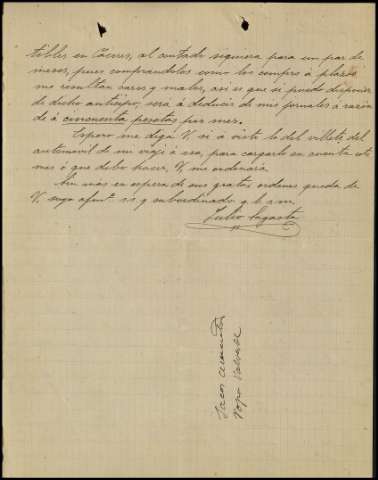 tibles en Caceres, al contado siquiera para un par de
meses, pues comprandolos como los compro á plazo
me resultan caros y malos, asi es que si puedo disponer
de dicho anticipo, será á deducir de mis jornales á razón
de á cincuenta pesetas por mes.
Espero me diga V. si á visto lo del villete del
automovil de mi viaje á esa, para cargarlo en cuenta este
mes ó que debo hacer, V. me ordenará.
Sin mas en espera de sus gratas ordenes queda de
V. suyo afmo. s.s. y subordinado q. b. s. m.
Julio Sagasta